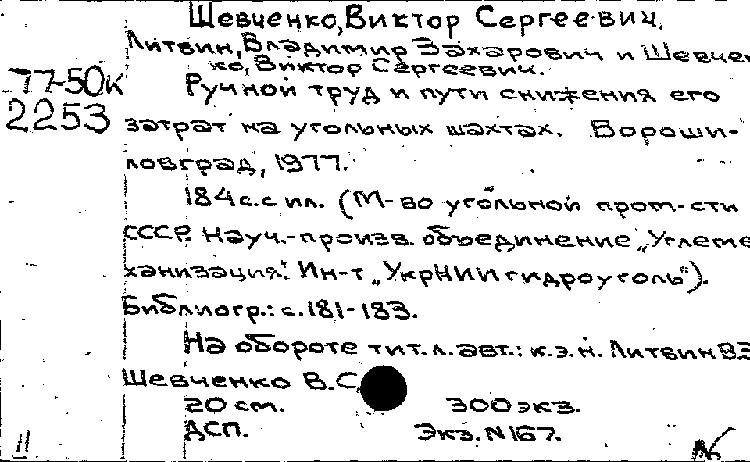 Шевченко, Виктор Сергеевич.
Литвин, Владимир Захарович и Шевчен
ко, Виктор Сергеевич.
77-50к
2253
Ручной труд и пути снижения его
затрат на угольных шахтах. Вороши-
ловград, 1977.
184 с. с ил. (М-во угольной пром-сти
СССР. Науч.-произв. объединение „Углеме
ханизация". Ин-т „УкрНИИгидроуголь").
Библиогр.: с. 181-183.
На обороте тит. л. авт.: к.э.н. Литвин В.З.
Шевченко В.С.
20 см. 300 экз.
ДСП. Экз. N 167.
11